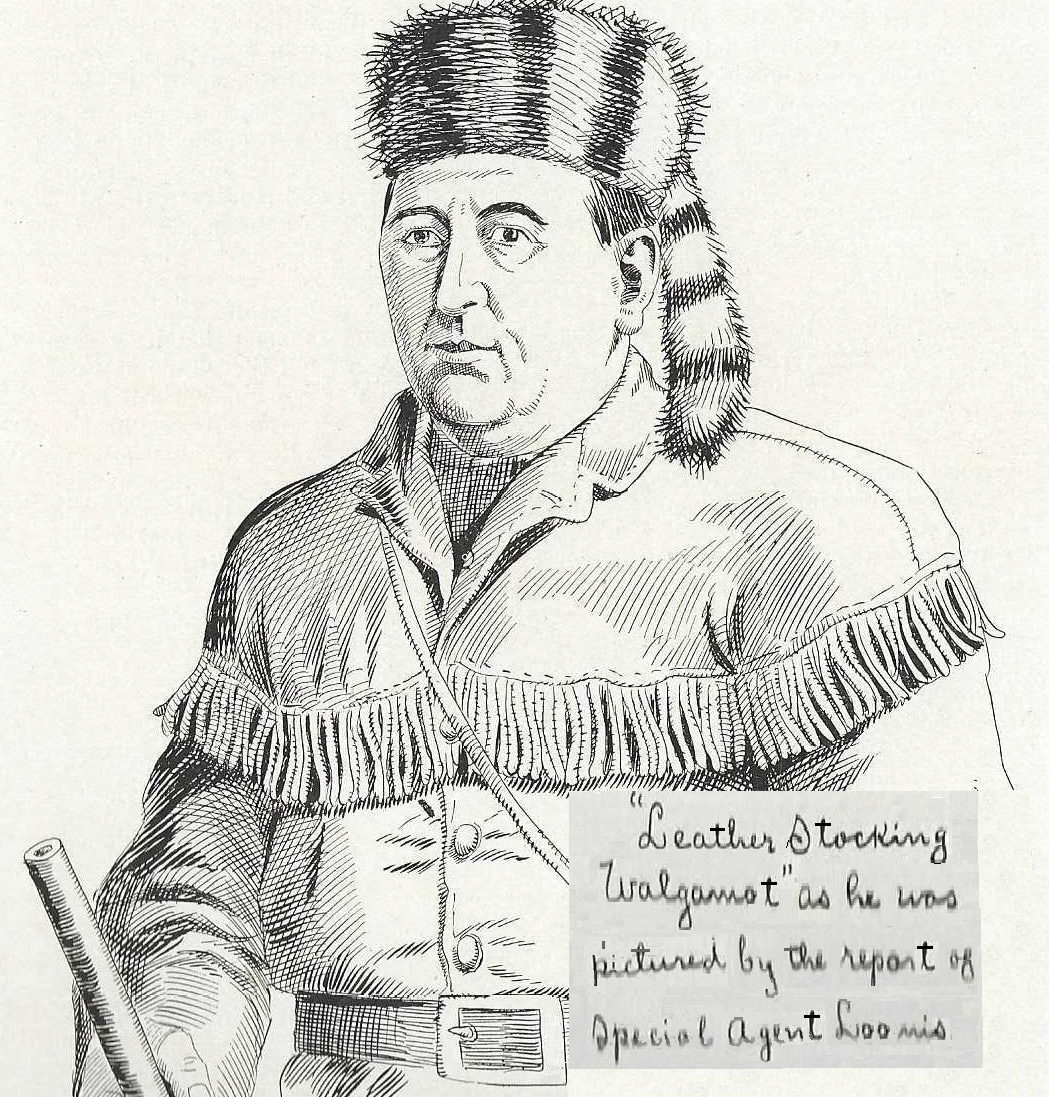 "Leather Stocking
Walgamot" as he was
pictured by the report of
Special Agent Loomis